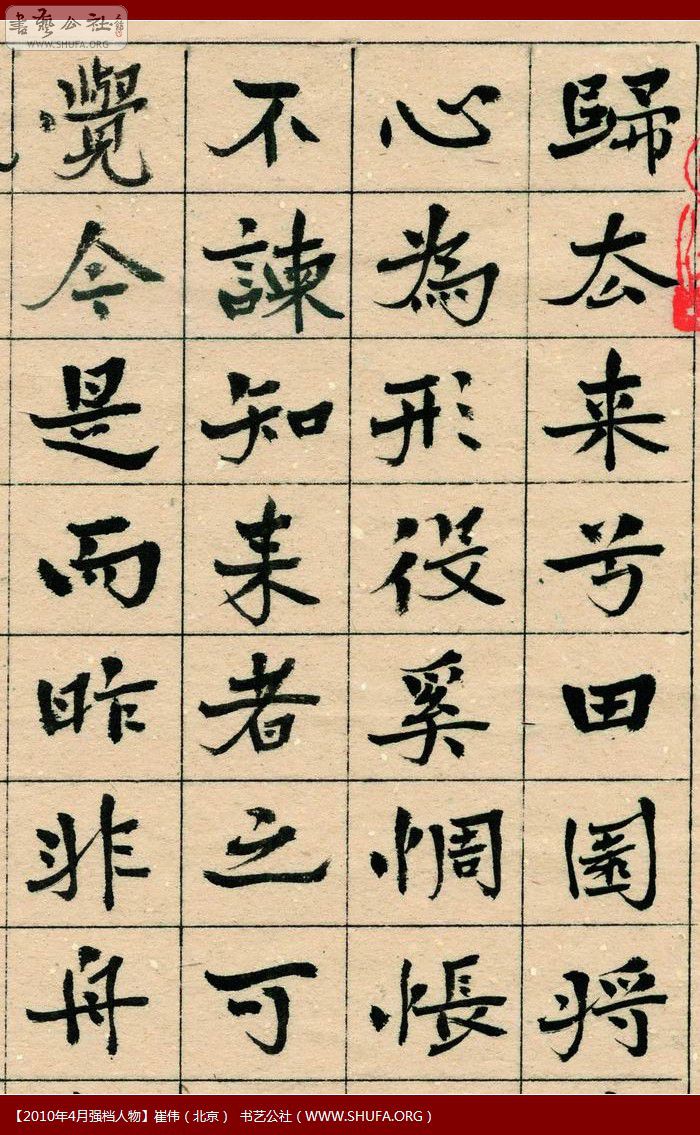 書藝公社
WWW.SHUFA.ORG
歸去来兮田園将
心為形役奚惆悵
不諫知来者之可
覺今是而昨非舟
【2010年4月强档人物】崔伟（北京） 书艺公社（WWW.SHUFA.ORG）